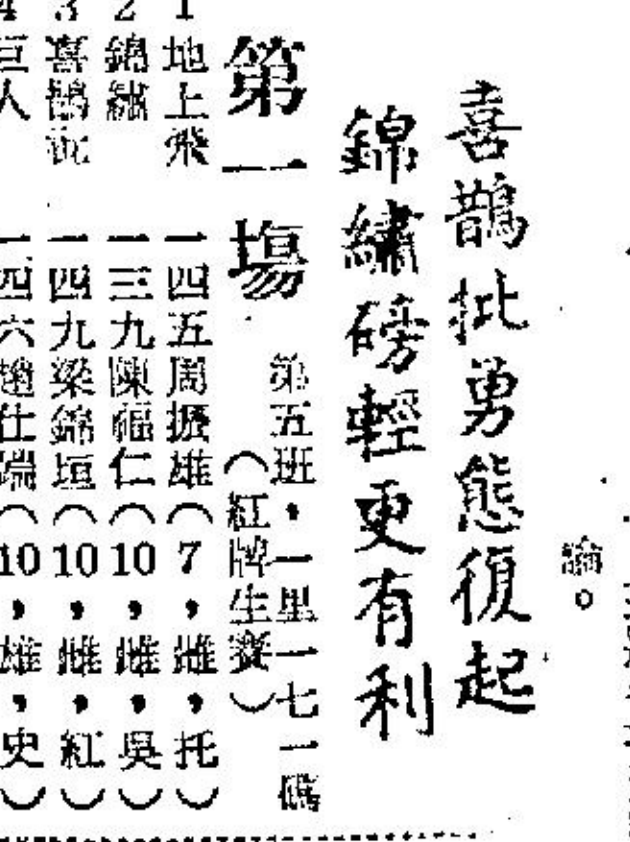 論。
喜鵲批勇態復起
錦繡磅輕更有利
第一場
第五班，一里一七一碼
（紅牌生賽）
1 地上飛 一四五周振雄（7，雌，托）
2 錦繡 一三九陳福仁（10，雌，吳）
3 喜鵲 一四九梁錦垣（10，雌，紅）
4 巨人 一四六趙仕端（10，雄，史）